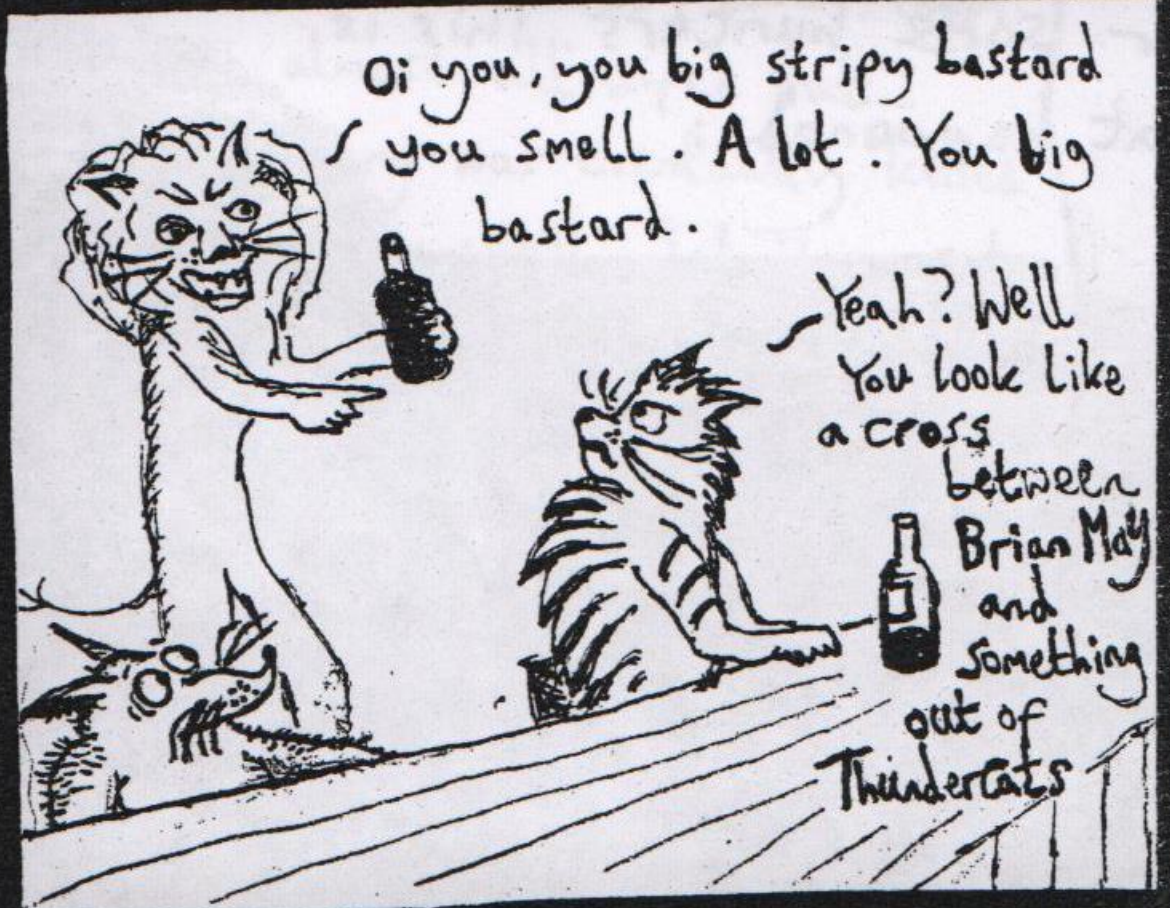 Oi you, you big stripy bastard
you smell. A lot. You big
bastard.
Yeah? Well
You look like
a cross
between
Brian May
and
something
out of
Thundercats